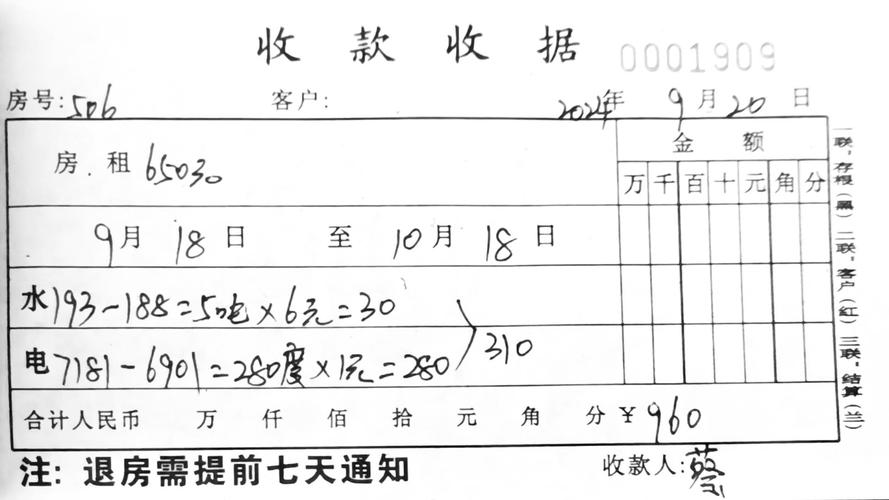 收款收据 0001909
房号:506 客户: 2024年9月20日
房.租 65030 金额
万千百十元角分
9月18日至10月18日
水193-188=5吨×6元=30
310
电7181-6901=280度×1元=280
合计人民币 万 仟 佰 拾 元 角 分 ¥960
注: 退房需提前七天通知 收款人:蔡
一联:存根(黑) 二联:客户(红) 三联:结算(兰)